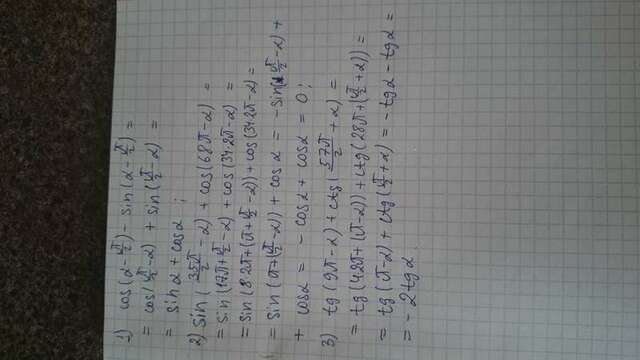 1) cos(α - π/2) - sin(α - π/2) =
= cos(π/2 - α) + sin(π/2 - α) =
= sin α + cos α ;
2) sin(35π/2 - α) + cos(68π - α) =
= sin(17π + π/2 - α) + cos(34·2π - α) =
= sin(8·2π + (π + π/2 - α)) + cos(34·2π - α) =
= sin(π + (π/2 - α)) + cos α = - sin(π/2 - α) +
+ cos α = - cos α + cos α = 0 ;
3) tg(9π - α) + ctg(57π/2 + α) =
= tg(4·2π + (π - α)) + ctg(28π + (π/2 + α)) =
= tg(π - α) + ctg(π/2 + α) = - tg α - tg α =
= - 2 tg α